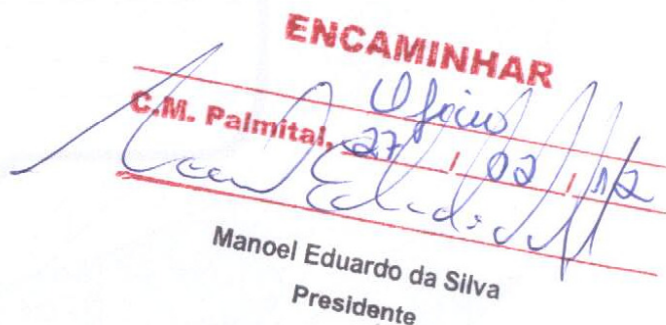 ENCAMINHAR
Ofício
C.M. Palmital, 27 / 02 / 12
Manoel Eduardo da Silva
Presidente